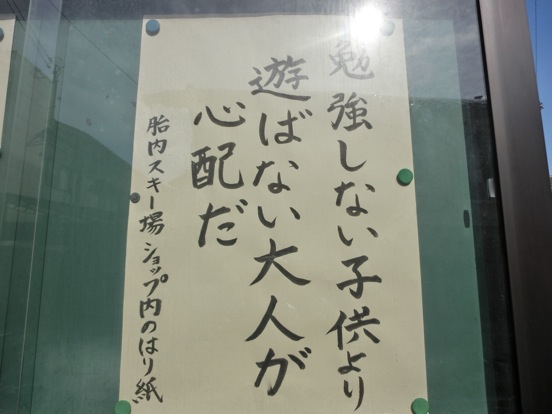 勉強しない子供より
遊ばない大人が
心配だ
胎内スキー場ショップ内のはり紙